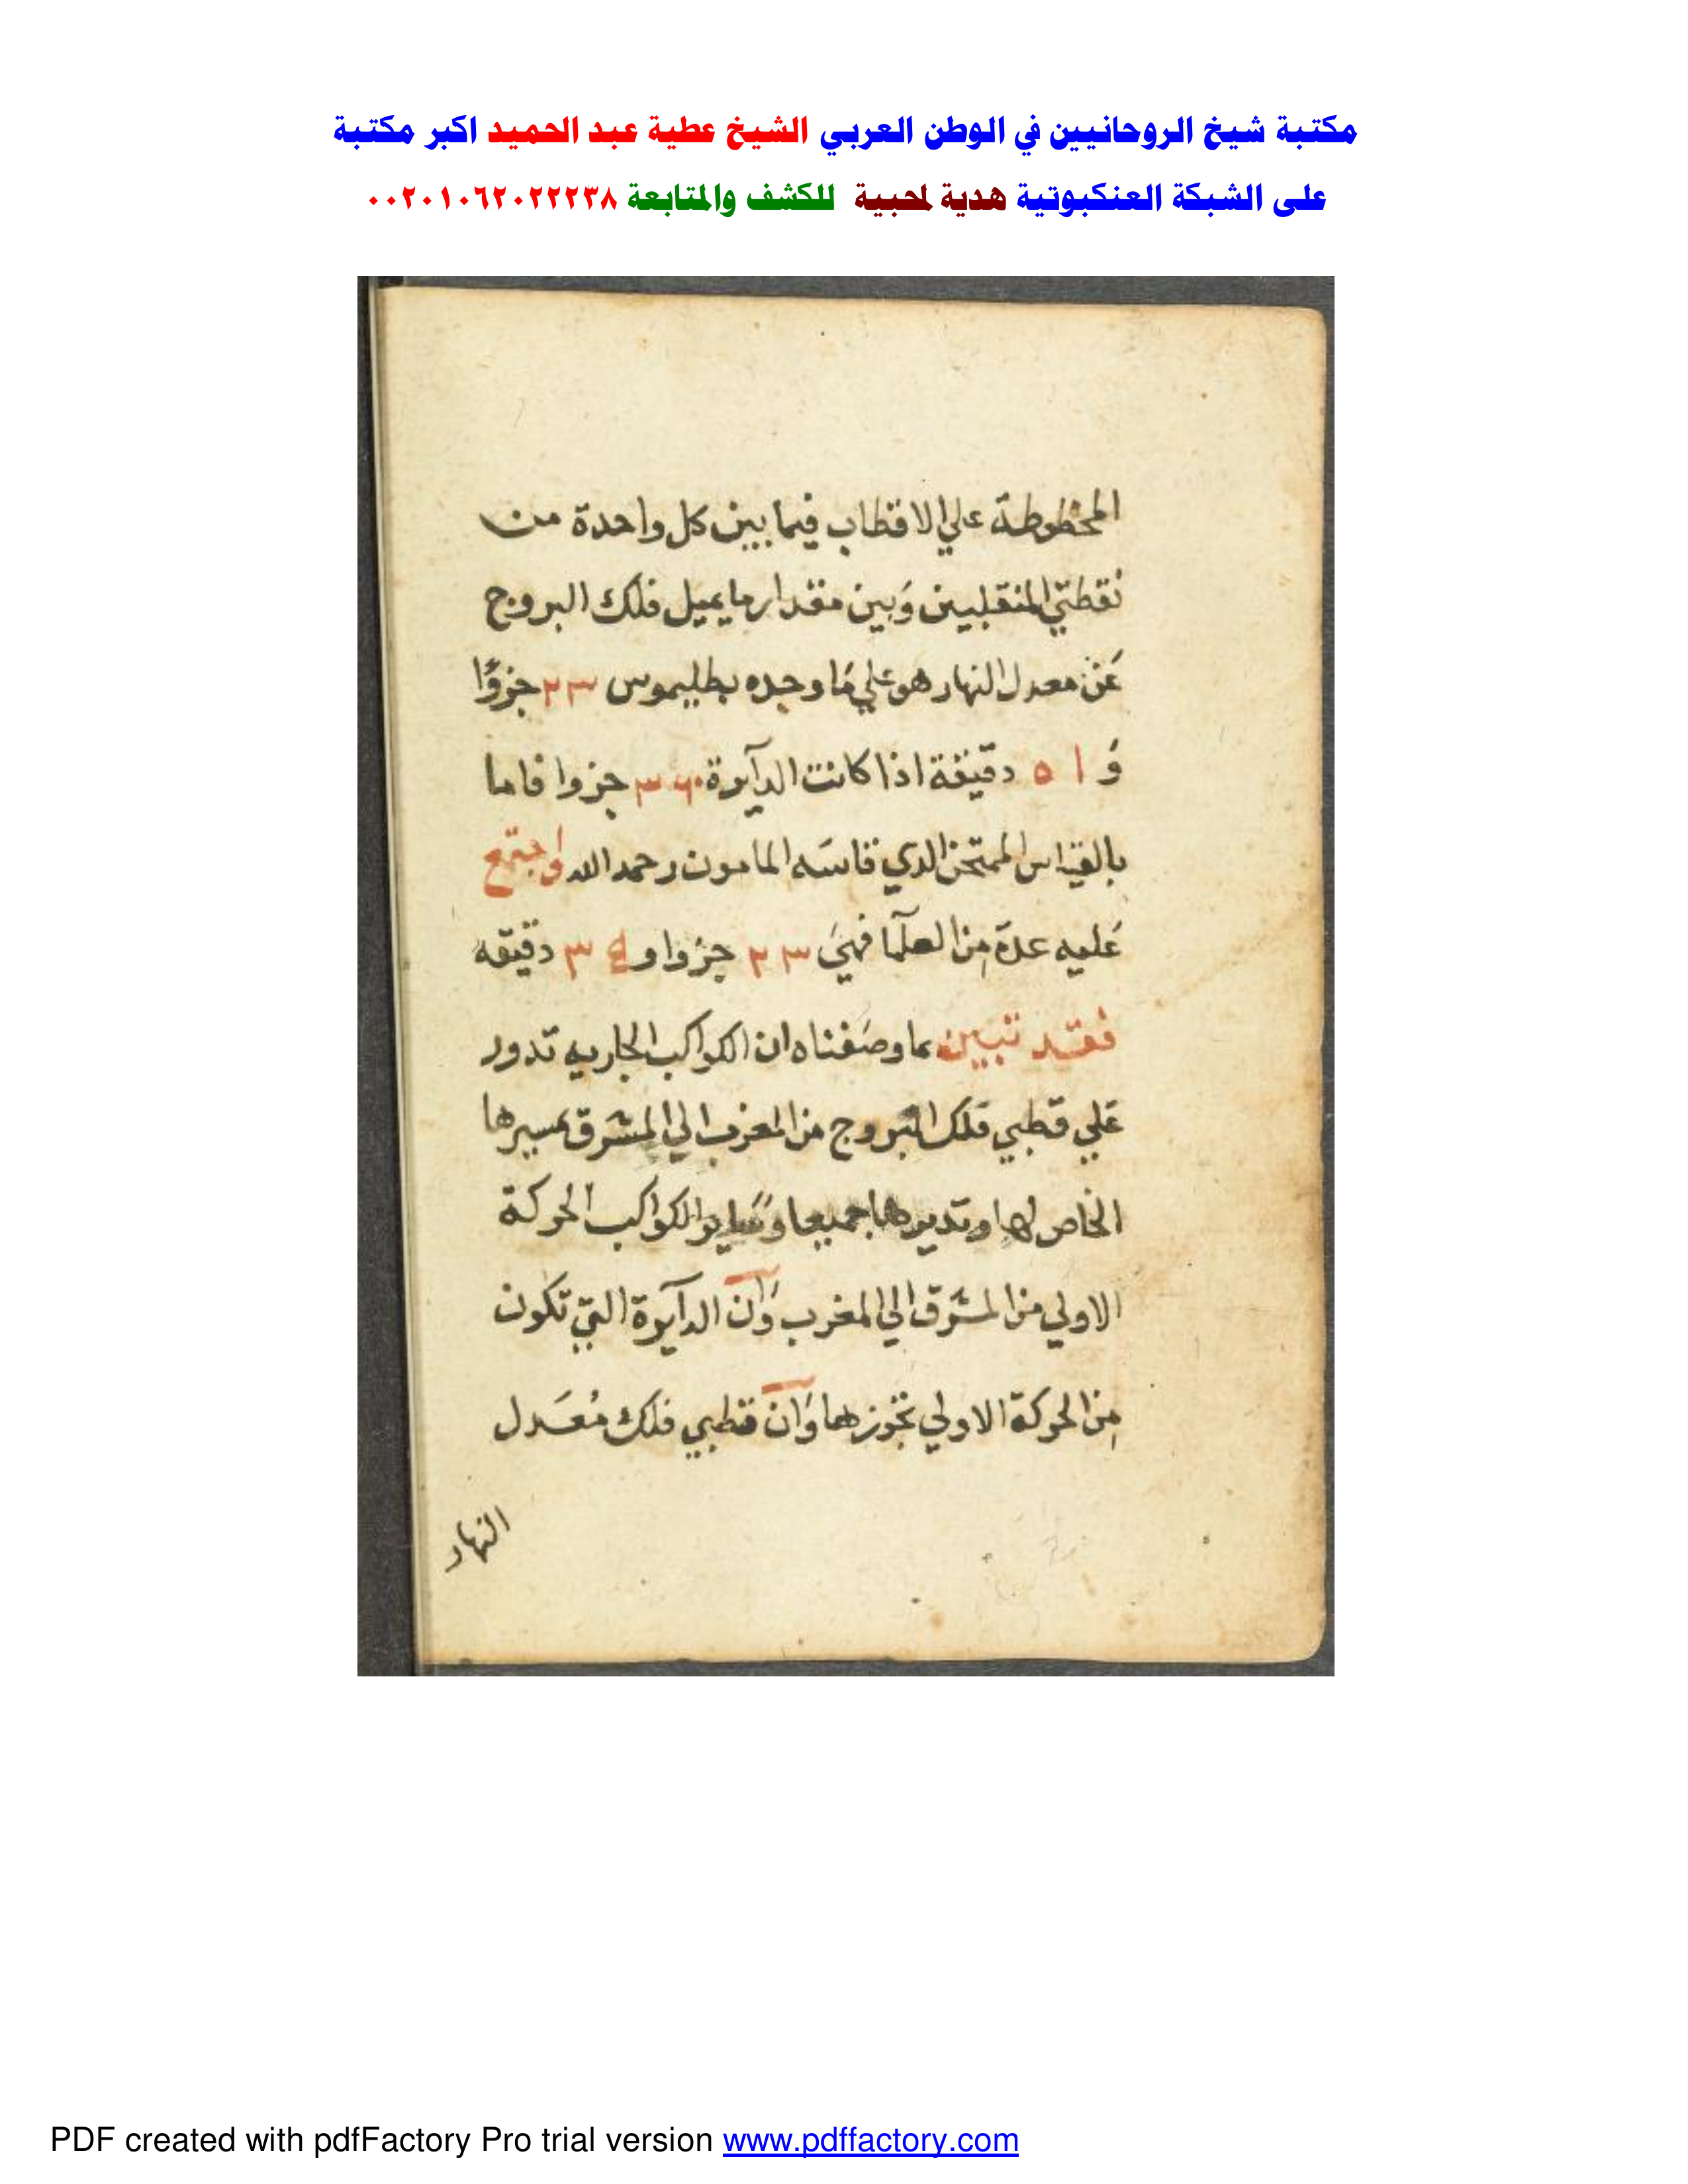 مكتبة شيخ الروحانيين في الوطن العربي الشيخ عطية عبد الحميد اكبر مكتبة
على الشبكة العنكبوتية هدية لمحبية للكشف والمتابعة ٠٠٢٠١٠٦٢٠٢٢٢٣٨
المخطوطة علي الاقطاب فيما بين كل واحدة من
نقطتي المنقلبين وَبين مقدار ما يميل فلك البروج
عَن معدل النهار هو علي مَا وجده بطليموس ٢٣ جزوًا
وَ ٥١ دقيقة اذا كانت الدآيرة ٣٦٠ جزوا فاما
بالقياس الممتحن الدي قاسَه المامون رحمه الله واجتمع
عَليه عدة مِن العلمآ فهيَ ٢٣ جزوا و ٣٤ دقيقه
فقد تبين بما وصَفناه ان الكواكب الجاريه تدور
عَلي قطبي فلك البروج من المغرب الي المشرق بمسيرها
الخاص لها وتديرها جميعا وَساير الكواكب الحركة
الاولي من المشرق الي المغرب وَان الدآيرة التي تكون
مِن الحركة الاولي تحوزها وَان قطبي فلك مُعَدل
النهار
PDF created with pdfFactory Pro trial version www.pdffactory.com